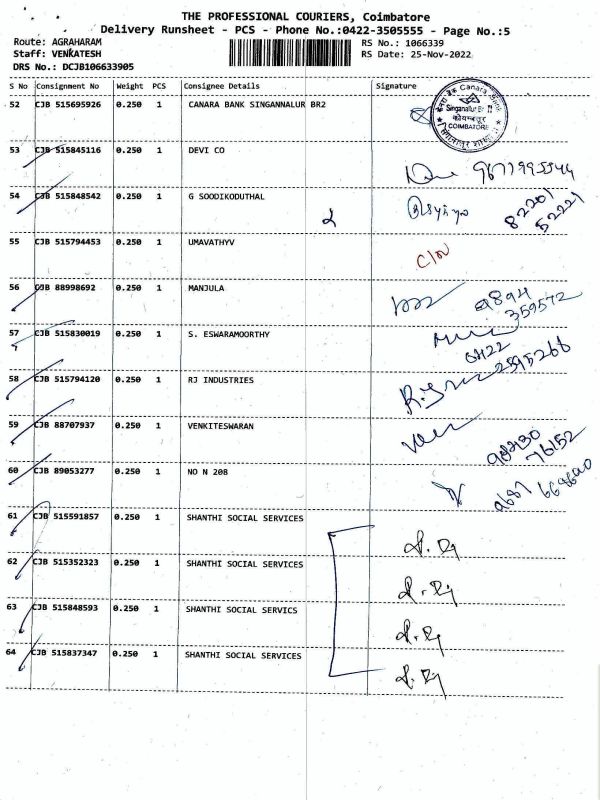 THE PROFESSIONAL COURIERS, Coimbatore
Delivery Runsheet - PCS - Phone No.:0422-3505555 - Page No.:5
Route: AGRAHARAM
RS No.: 1066339
Staff: VENKATESH
RS Date: 25-Nov-2022
DRS No.: DCJB106633905
S No Consignment No Weight PCS Consignee Details Signature
52 CJB 515695926 0.250 1 CANARA BANK SINGANNALUR BR2
Canara Bank
COIMBATORE
53 CJB 515845116 0.250 1 DEVI CO
54 CJB 515848542 0.250 1 G SOODIKODUTHAL
82201
52221
55 CJB 515794453 0.250 1 UMAVATHYV
56 CJB 88998692 0.250 1 MANJULA
9894
359572
57 CJB 515830019 0.250 1 S. ESWARAMOORTHY
58 CJB 515794120 0.250 1 RJ INDUSTRIES
59 CJB 88707937 0.250 1 VENKITESWARAN
76152
60 CJB 89053277 0.250 1 NO N 20B
61 CJB 515591857 0.250 1 SHANTHI SOCIAL SERVICES
62 CJB 515352323 0.250 1 SHANTHI SOCIAL SERVICES
63 CJB 515848593 0.250 1 SHANTHI SOCIAL SERVICS
64 CJB 515837347 0.250 1 SHANTHI SOCIAL SERVICES